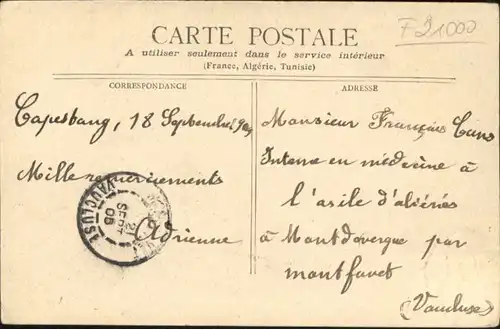 CARTE POSTALE
A utiliser seulement dans le service intérieur
(France, Algérie, Tunisie)
CORRESPONDANCE
Capestang, 18 Septembre
Mille remerciements
Adrienne
VAUCLUSE
21
SEPT
05
ADRESSE
Monsieur François
Interne en médecine à
l'asile d'aliénés
à Montdevergue par
montfavet
(Vaucluse)